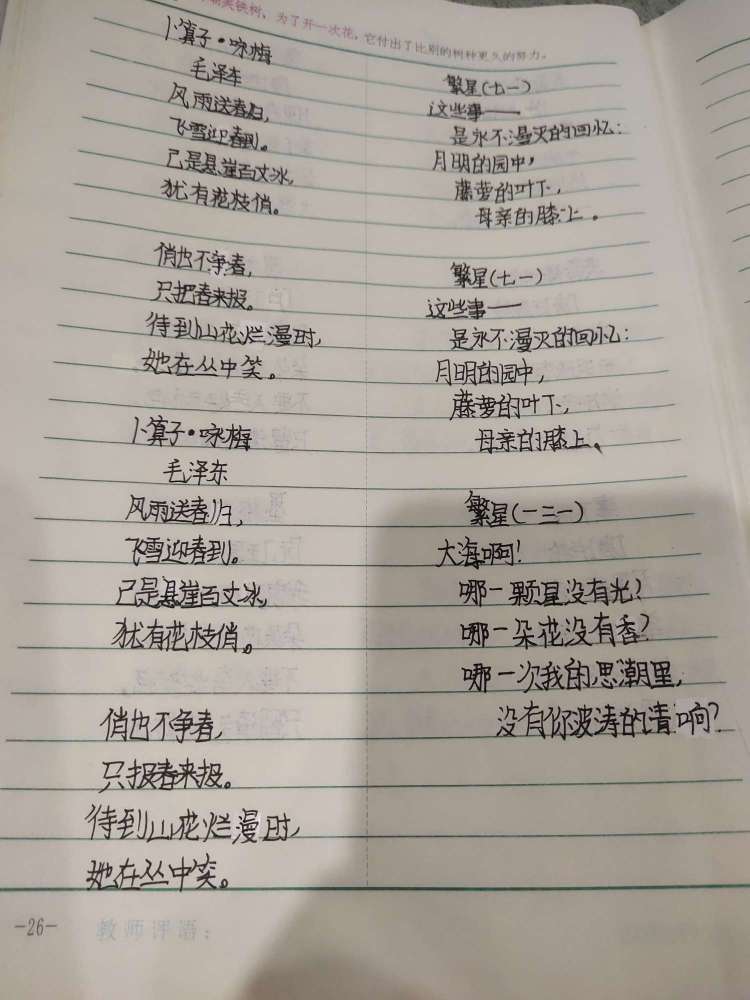 美铁树，为了开一次花，它付出了比别的树种更久的努力。
卜算子·咏梅
毛泽东
风雨送春归，
飞雪迎春到。
已是悬崖百丈冰，
犹有花枝俏。
俏也不争春，
只把春来报。
待到山花烂漫时，
她在丛中笑。
卜算子·咏梅
毛泽东
风雨送春归，
飞雪迎春到。
已是悬崖百丈冰，
犹有花枝俏。
俏也不争春，
只报春来报。
待到山花烂漫时，
她在丛中笑。
繁星(七一)
这些事——
是永不漫灭的回忆：
月明的园中，
藤萝的叶下，
母亲的膝上。
繁星(七一)
这些事——
是永不漫灭的回忆：
月明的园中，
藤萝的叶下，
母亲的膝上。
繁星(一三一)
大海啊！
哪一颗星没有光？
哪一朵花没有香？
哪一次我的思潮里，
没有你波涛的清响？
-26-
教师评语：